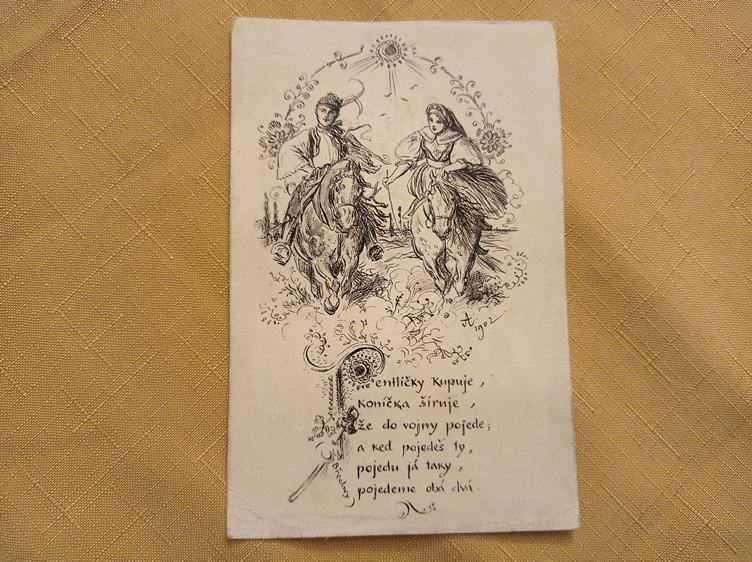 A 1902
Pentličky kupuje,
koníčka šíruje,
že do vojny pojede;
a keď pojedeš ty,
pojedu já taky,
pojedeme obá dvá.